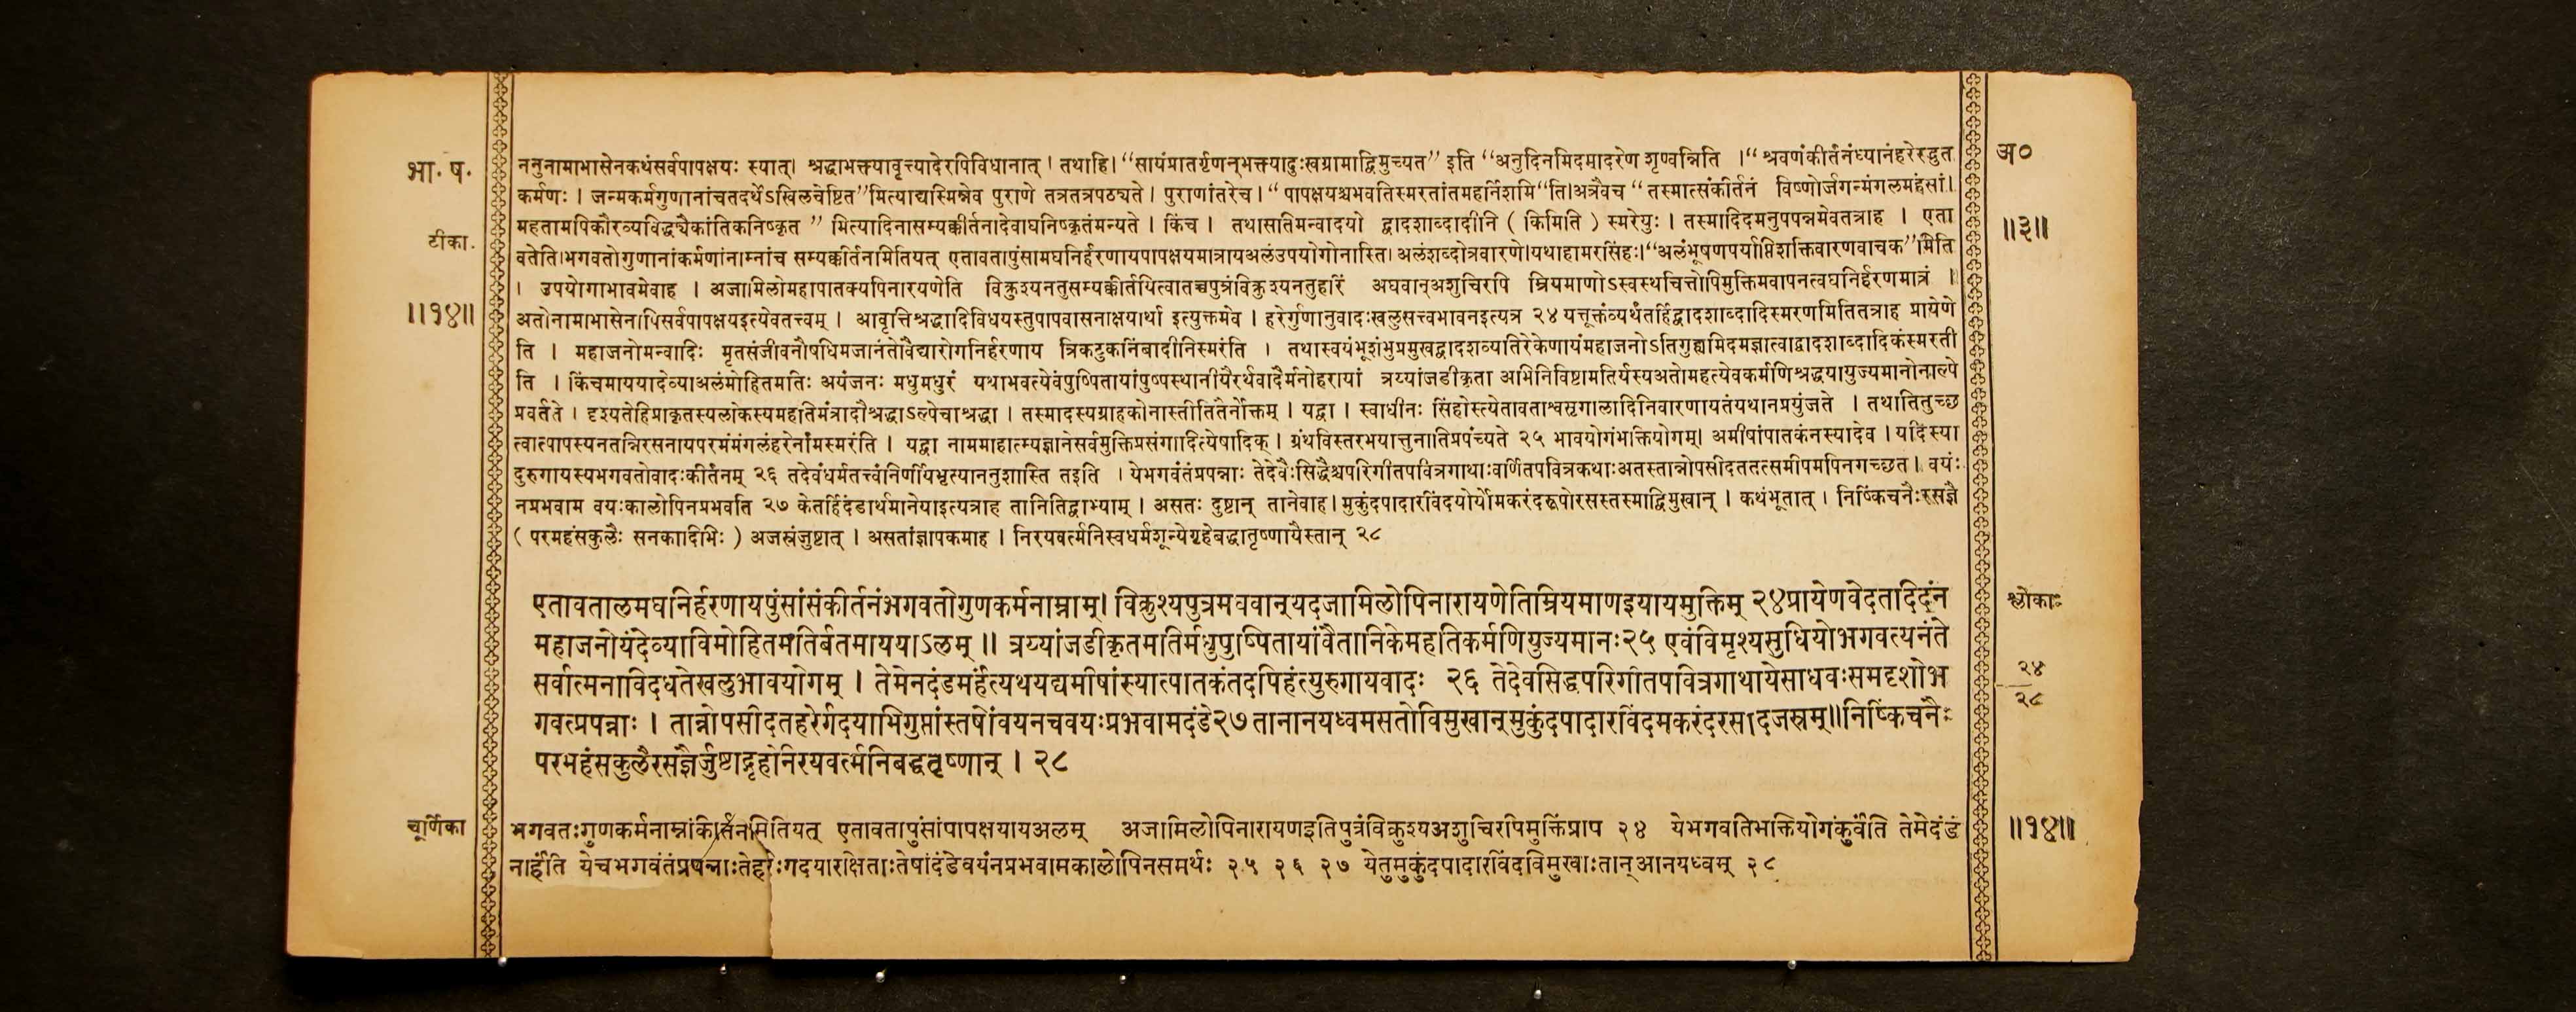 भा. ष.
टीका.
॥१४॥
ननुनामाभासेनकथंसर्वपापक्षयः स्यात्। श्रद्धाभक्त्यावृत्त्यादेरपिविधानात् । तथाहि। “सायंप्रातर्गृणन्भक्त्यादुःखग्रामाद्विमुच्यत” इति “अनुदिनमिदमादरेण शृण्वन्निति ।“ श्रवणंकीर्तनंध्यानंहरेरद्भुत
कर्मणः । जन्मकर्मगुणानांचतदर्थेऽखिलचेष्टित”मित्याद्यस्मिन्नेव पुराणे तत्रतत्रपठ्यते । पुराणांतरेच। “ पापक्षयश्चभवतिस्मरतांतमहर्निशमि“ति।अत्रैवच “ तस्मात्संकीर्तनं विष्णोर्जगन्मंगलमहंसां।
महतामपिकौरव्यविद्ध्यैकांतिकनिष्कृत ” मित्यादिनासम्यक्कीर्तनादेवाघनिष्कृतंमन्यते । किंच । तथासतिमन्वादयो द्वादशाब्दादीनि ( किमिति ) स्मरेयुः । तस्मादिदमनुपपन्नमेवतत्राह । एता
वतेति।भगवतोगुणानांकर्मणांनाम्नांच सम्यक्कीर्तनमितियत् एतावतापुंसामघनिर्हरणायपापक्षयमात्रायअलंउपयोगोनास्ति। अलंशब्दोत्रवारणे।यथाहामरसिंहः।“अलंभूषणपर्याप्तिशक्तिवारणवाचक”मिति
। उपयोगाभावमेवाह । अजामिलोमहापातक्यपिनारयणेति विक्रुश्यनतुसम्यक्कीर्तयित्वातच्चपुत्रंविक्रुश्यनतुहरिं अघवान्अशुचिरपि म्रियमाणोऽस्वस्थचित्तोपिमुक्तिमवापनत्वघनिर्हरणमात्रं ।
अतोनामाभासेनापिसर्वपापक्षयइत्येवतत्त्वम् । आवृत्तिश्रद्धादिविधयस्तुपापवासनाक्षयार्था इत्युक्तमेव । हरेर्गुणानुवादःखलुसत्त्वभावनइत्यत्र २४ यत्तूक्तंव्यर्थंतर्हिद्वादशाब्दादिस्मरणमितितत्राह प्रायेणे
ति । महाजनोमन्वादिः मृतसंजीवनौषधिमजानंतोवैद्यारोगनिर्हरणाय त्रिकटुकनिंबादीनिस्मरंति । तथास्वयंभूशंभुप्रमुखद्वादशव्यतिरेकेणायंमहाजनोऽतिगुह्यमिदमज्ञात्वाद्वादशाब्दादिकंस्मरती
ति । किंचमाययादेव्याअलंमोहितमतिः अयंजनः मधुमधुरं यथाभवत्येवंपुष्पितायांपुष्पस्थानीयैरर्थवादैर्मनोहरायां त्रय्यांजडीकृता अभिनिविष्टामतिर्यस्यअतोमहत्येवकर्मणिश्रद्धयायुज्यमानोनाल्पे
प्रवर्तते । दृश्यतेहिप्राकृतस्यलोकस्यमहतिमंत्रादौश्रद्धाऽल्पेचाश्रद्धा । तस्मादस्यग्राहकोनास्तीतितैर्नोक्तम् । यद्वा । स्वाधीनः सिंहोस्त्येतावताश्वसृगालादिनिवारणायतंयथानप्रयुंजते । तथातितुच्छ
त्वात्पापस्यनतन्निरसनायपरमंमंगलंहरेर्नामस्मरंति । यद्वा नाममाहात्म्यज्ञानेसर्वमुक्तिप्रसंगादित्येषादिक् । ग्रंथविस्तरभयात्तुनातिप्रपंच्यते २५ भावयोगंभक्तियोगम्। अमीषांपातकंनस्यादेव । यदिस्या
दुरुगायस्यभगवतोवादःकीर्तनम् २६ तदेवंधर्मतत्त्वंनिर्णीयभृत्याननुशास्ति तइति । येभगवंतंप्रपन्नाः तेदेवैःसिद्धैश्चपरिगीतपवित्रगाथाःवर्णितपवित्रकथाःअतस्तान्नोपसीदततत्समीपमपिनगच्छत। वयंः
नप्रभवाम वयःकालोपिनप्रभवति २७ केतर्हिदंडार्थमानेयाइत्यत्राह तानितिद्वाभ्याम् । असतः दुष्टान् तानेवाह। मुकुंदपादारविंदयोर्योमकरंदरूपोरसस्तस्माद्विमुखान् । कथंभूतात् । निष्किंचनैःरसज्ञै
( परमहंसकुलैः सनकादिभिः ) अजस्रंजुष्टात् । असतांज्ञापकमाह । निरयवर्त्मनिस्वधर्मशून्येगृहेबद्धातृष्णायैस्तान् २८
एतावतालमघनिर्हरणायपुंसांसंकीर्तनंभगवतोगुणकर्मनाम्नाम्। विक्रुश्यपुत्रमघवान्यदजामिलोपिनारायणेतिम्रियमाणइयायमुक्तिम् २४प्रायेणवेदतदिदंन
महाजनोयंदेव्याविमोहितमतिर्बतमाययाऽलम् ॥ त्रय्यांजडीकृतमतिर्मधुपुष्पितायांवैतानिकेमहतिकर्मणियुज्यमानः२५ एवंविमृश्यसुधियोभगवत्यनंते
सर्वात्मनाविदधतेखलुभावयोगम् । तेमेनदंडमर्हंत्यथयद्यमीषांस्यात्पातकंतदपिहंत्युरुगायवादः २६ तेदेवसिद्धपरिगीतपवित्रगाथायेसाधवःसमदृशोभ
गवत्प्रपन्नाः । तान्नोपसीदतहरेर्गदयाभिगुप्तांस्तेषांवयंनचवयःप्रभवामदंडे२७तानानयध्वमसतोविमुखान्मुकुंदपादारविंदमकरंदरसादजस्रम्॥निष्किंचनैः
परमहंसकुलैरसज्ञैर्जुष्टाद्गृहेनिरयवर्त्मनिबद्धतृष्णान् । २८
चूर्णिका
भगवतःगुणकर्मनाम्नांकीर्तनमितियत् एतावतापुंसांपापक्षयायअलम् अजामिलोपिनारायणइतिपुत्रंविक्रुश्यअशुचिरपिमुक्तिंप्राप २४ येभगवतिभक्तियोगंकुर्वंति तेमेदंडं
नार्हंति येचभगवंतंप्रपन्नाःतेहरेःगदयारक्षिताःतेषांदंडेवयंनप्रभवामकालोपिनसमर्थः २५ २६ २७ येतुमुकुंदपादारविंदविमुखाःतान्आनयध्वम् २८
अ०
॥३॥
श्लोकाः
२४
२८
॥१४॥